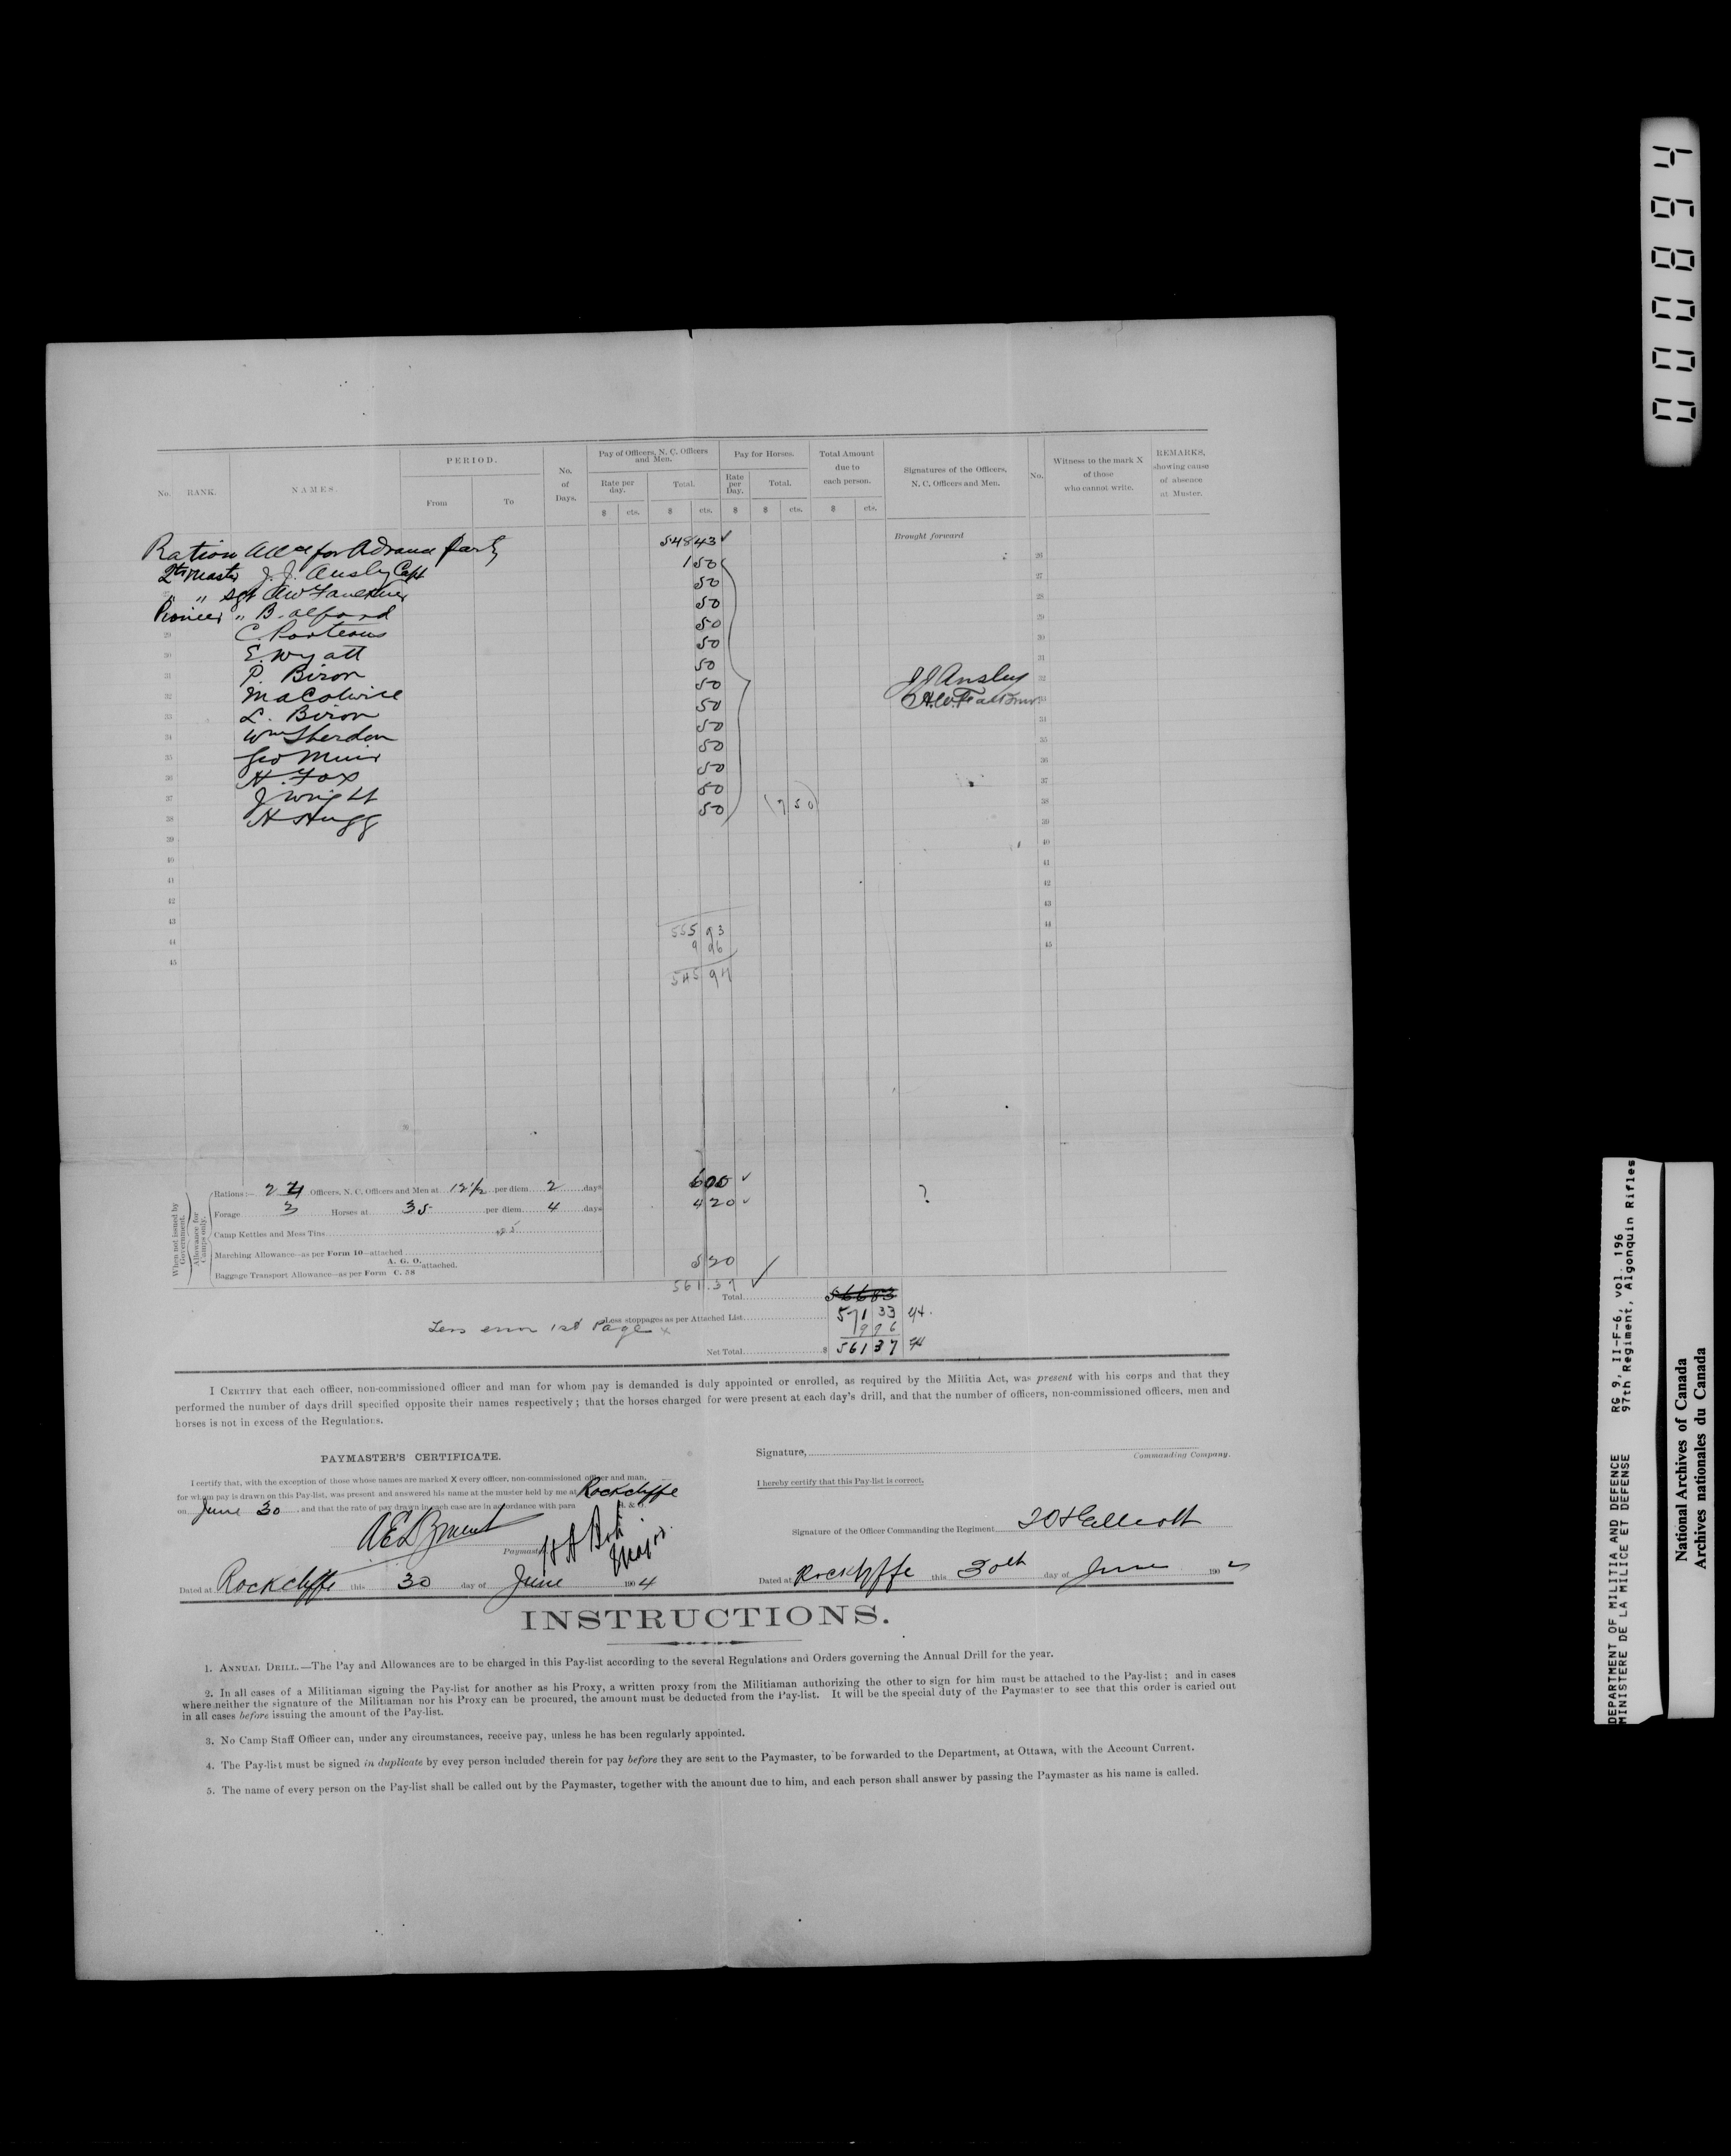 No. RANK. NAMES. PERIOD. From To No. of Days. Pay of Officers, N. C. Officers and Men. Rate per day. $ cts. Total. $ cts. Pay for Horses. Rate per Day. $ Total. $ cts. Total Amount due to each person. $ cts. Signatures of the Officers, N. C. Officers and Men. No. Witness to the mark X of those who cannot write. REMARKS, showing cause of absence at Muster.
Ration Allce for Advance Party 548 43 Brought forward
Qtr Master J. J. Ansley Capt 1 50 26
" " Sgt AW Faulkner 50 27
Pioneer " B. Alford 50 28
29 C. Porteous 50 29
30 E. Wyatt 50 30
31 P. Biron 50 31
32 50 J J Ansley 32
33 L. Biron 50 A. W. Faulkner 33
34 Wm Sherdon 50 34
35 Geo Muir 50 35
36 H. Fox 50 36
37 J Wright 50 37
38 H Hugg 50 (7 50) 38
39 39
40 40
41 41
42 42
43 43
44 555 93 44
45 9 96 45
545 97
When not issued by Government.
Allowance for Camps only.
Rations:— 24 Officers, N. C. Officers and Men at 12½ per diem 2 days 6 00 ✓
Forage 3 Horses at 35 per diem 4 days 4 20 ✓ ?
Camp Kettles and Mess Tins
Marching Allowance—as per Form 10—attached
Baggage Transport Allowance—as per Form A. G. O. C. 58 attached. 5 20
561.37 ✓
Total 566 83
Less stoppages as per Attached List 571 33
Less error 1st Page x 9 96
Net Total $ 561 37
I CERTIFY that each officer, non-commissioned officer and man for whom pay is demanded is duly appointed or enrolled, as required by the Militia Act, was present with his corps and that they
performed the number of days drill specified opposite their names respectively; that the horses charged for were present at each day's drill, and that the number of officers, non-commissioned officers, men and
horses is not in excess of the Regulations.
PAYMASTER'S CERTIFICATE.
I certify that, with the exception of those whose names are marked X every officer, non-commissioned officer and man,
for whom pay is drawn on this Pay-list, was present and answered his name at the muster held by me at Rockcliffe
on June 30, and that the rate of pay drawn in each case are in accordance with para & O.
Paymaster
Major.
Dated at Rockcliffe this 30 day of June 1904
Signature, Commanding Company.
I hereby certify that this Pay-list is correct.
Signature of the Officer Commanding the Regiment
Dated at Rockliffe this 30th day of June 190
INSTRUCTIONS.
1. ANNUAL DRILL.—The Pay and Allowances are to be charged in this Pay-list according to the several Regulations and Orders governing the Annual Drill for the year.
2. In all cases of a Militiaman signing the Pay-list for another as his Proxy, a written proxy from the Militiaman authorizing the other to sign for him must be attached to the Pay-list; and in cases
where neither the signature of the Militiaman nor his Proxy can be procured, the amount must be deducted from the Pay-list. It will be the special duty of the Paymaster to see that this order is caried out
in all cases before issuing the amount of the Pay-list.
3. No Camp Staff Officer can, under any circumstances, receive pay, unless he has been regularly appointed.
4. The Pay-list must be signed in duplicate by evey person included therein for pay before they are sent to the Paymaster, to be forwarded to the Department, at Ottawa, with the Account Current.
5. The name of every person on the Pay-list shall be called out by the Paymaster, together with the amount due to him, and each person shall answer by passing the Paymaster as his name is called.
DEPARTMENT OF MILITIA AND DEFENCE RG 9, II-F-6, vol. 196
MINISTERE DE LA MILICE ET DEFENSE 97th Regiment, Algonquin Rifles
National Archives of Canada
Archives nationales du Canada